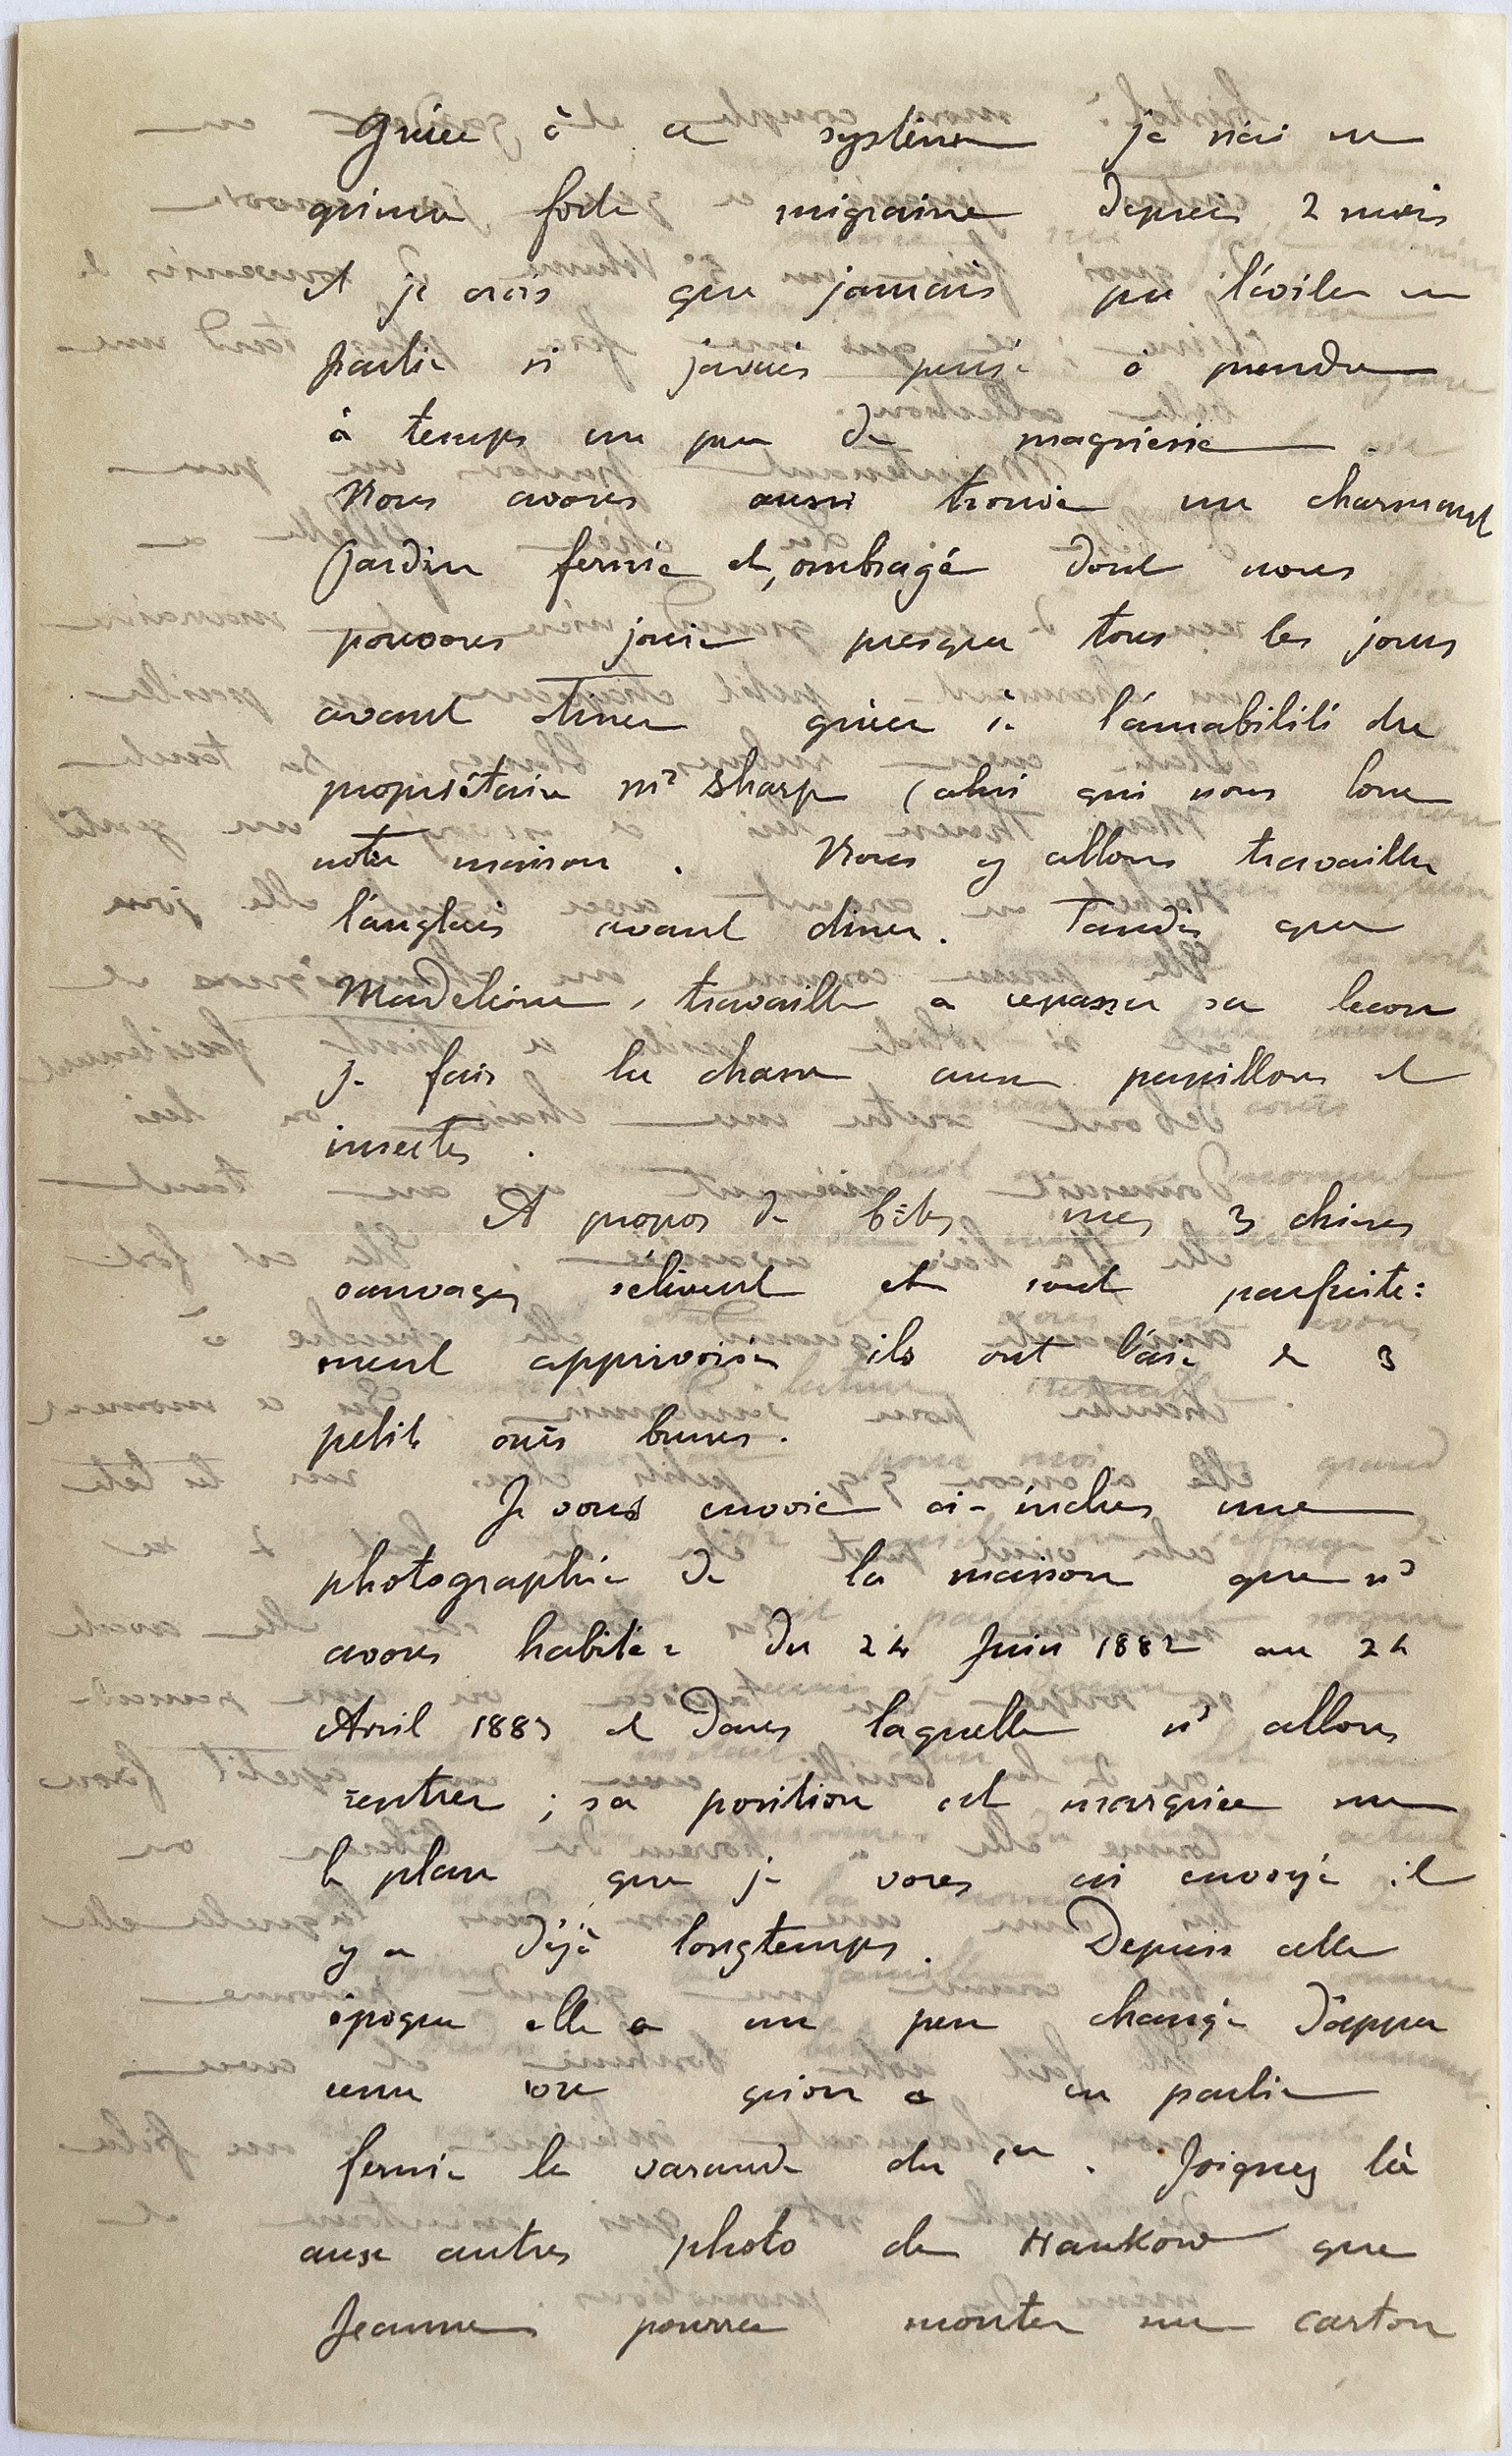 Grâce à ce système je n'ai eu
qu'une forte migraine depuis 2 mois
et je crois que j'aurais pu l'éviter en
partie si j'avais pensé à prendre
à temps un peu de magnésie.
Nous avons aussi trouvé un charmant
jardin fermé et, ombragé dont nous
pouvons jouir presque tous les jours
avant diner grâce à l'amabilité du
propriétaire Mr Sharp (celui qui nous loue
notre maison. Nous y allons travailler
l'anglais avant diner. Tandis que
Madeleine, travaille a repasser sa lecon
je fais la chasse aux papillons et
insectes.
A propos de bêtes mes 3 chiens
sauvages s'élèvent et sont parfaite:
ment apprivoisés ils ont l'air de 3
petits ours bruns.
Je vous envoie ci-inclus une
photographie de la maison que ns
avons habitée du 24 Juin 1882 au 24
Avril 1883 et dans laquelle ns allons
rentrer ; sa position est marquée sur
le plan que je vous ai envoyé il
y a déjà longtemps. Depuis cette
époque elle a un peu changé d'appa
rence qu'on a en partie
fermé la varande du 1er. Joignez là
aux autres photo de Hankow que
Jeanne pourra monter sur carton